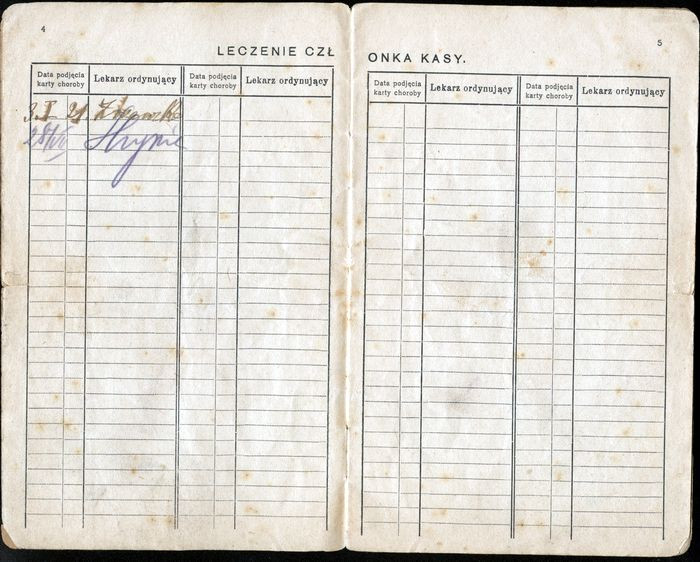 4
LECZENIE CZŁ
Data podjęcia karty choroby
Lekarz ordynujący
Data podjęcia karty choroby
Lekarz ordynujący
3. I 21.
28/VI
5
ONKA KASY.
Data podjęcia karty choroby
Lekarz ordynujący
Data podjęcia karty choroby
Lekarz ordynujący